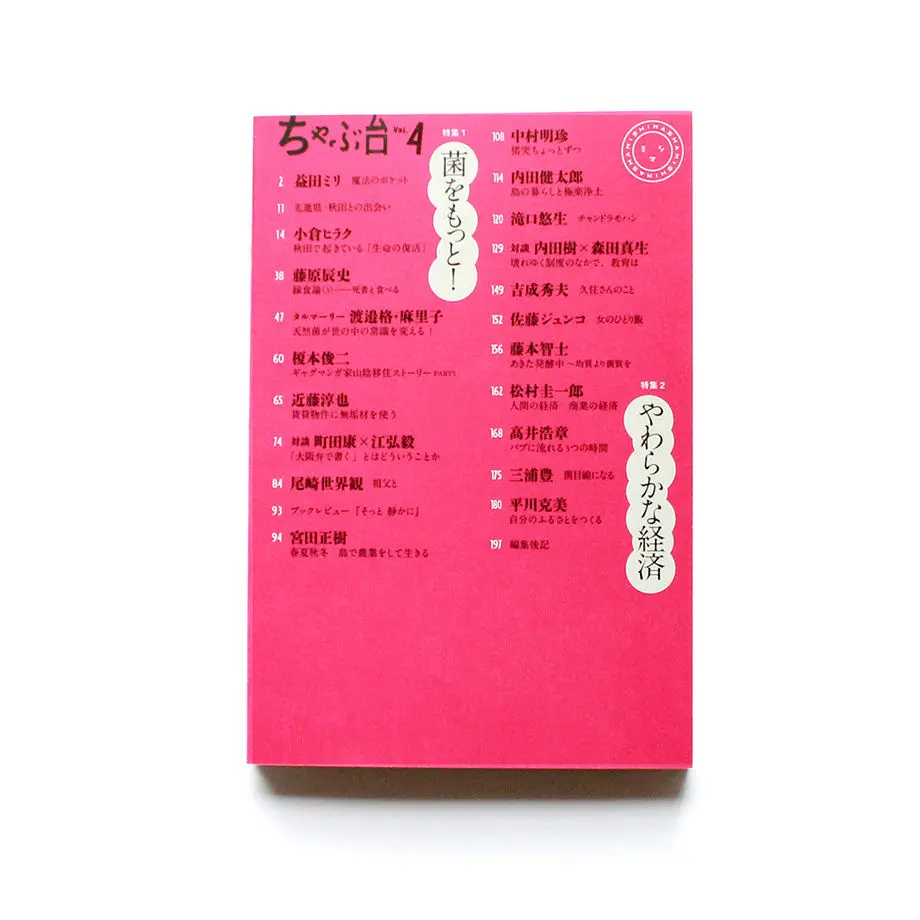 ちゃぶ台 Vol. 4
2 益田ミリ 魔法のポケット
11 先進県・秋田との出会い
14 小倉ヒラク
秋田で起きている「生命の復活」
38 藤原辰史
縁食論(3)――死者と食べる
47 タルマーリー 渡邉格・麻里子
天然菌が世の中の常識を変える!
60 榎本俊二
ギャグマンガ家山陰移住ストーリー PART5
65 近藤淳也
賃貸物件に無垢材を使う
74 対談 町田康×江弘毅
「大阪弁で書く」とはどういうことか
84 尾崎世界観 祖父と
93 ブックレビュー『そっと 静かに』
94 宮田正樹
春夏秋冬 島で農業をして生きる
特集1
菌をもっと!
108 中村明珍
猪突ちょっとずつ
114 内田健太郎
島の暮らしと極楽浄土
120 滝口悠生 チャンドラモハン
129 対談 内田樹×森田真生
壊れゆく制度のなかで、教育は
149 吉成秀夫 久住さんのこと
152 佐藤ジュンコ 女のひとり飯
156 藤本智士
あきた発酵中 ~均質より菌質を
162 松村圭一郎
人間の経済 商業の経済
168 高井浩章
パブに流れる3つの時間
175 三浦豊 菌目線になる
180 平川克美
自分のふるさとをつくる
197 編集後記
特集2
やわらかな経済
MISHIMASHA
ミシマ